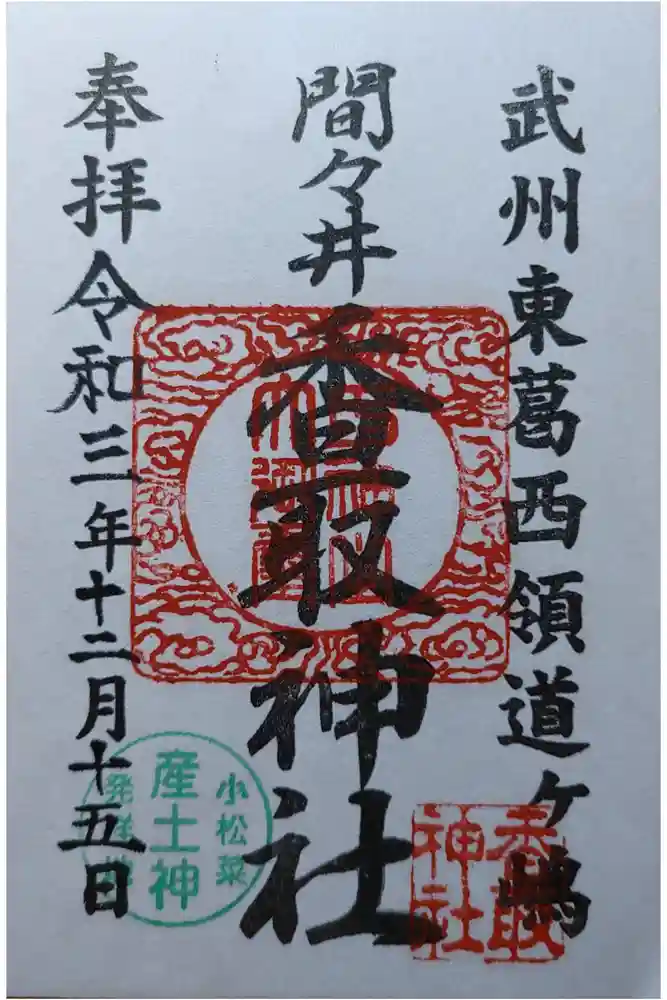 武州東葛西領道ヶ嶋
間々井香取神社
奉拝令和三年十二月十五日
香取
神社
小松菜
産土神
発祥地